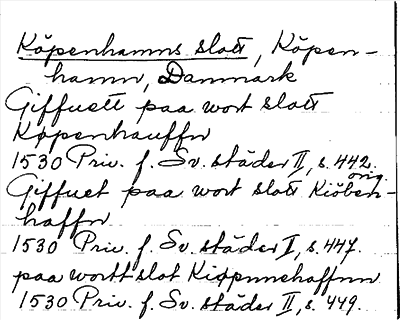 Köpenhamns slott, Köpen-
hamn, Danmark
Giffuett paa wort slott
Køpenhauffn
1530 Priv. f. Sv. städer II, s. 442.
orig.
Giffuet paa wort slott Kiöben-
haffn
1530 Priv. f. Sv. städer I, s. 447.
paa wortt slot Kiøpnnehaffnn
1530 Priv. f. Sv. städer II, s. 449.